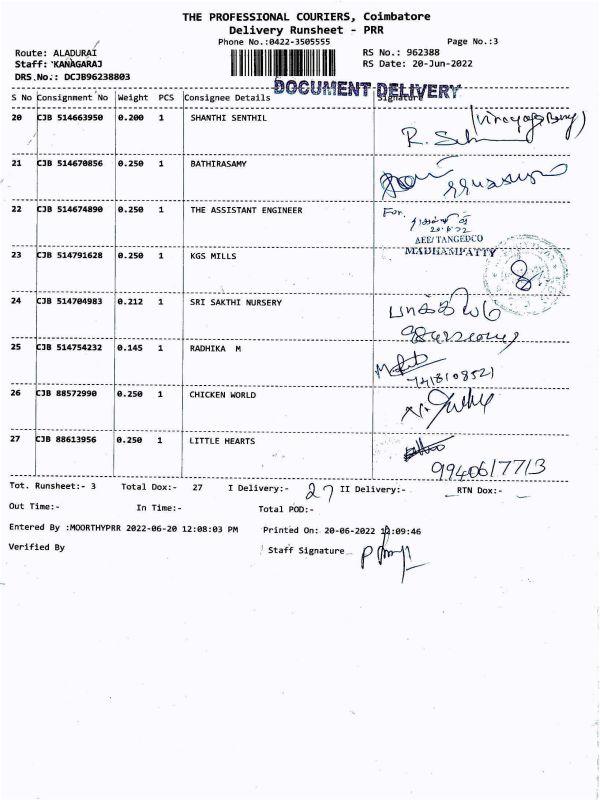 THE PROFESSIONAL COURIERS, Coimbatore
Delivery Runsheet - PRR
Phone No.:0422-3505555 Page No.:3
Route: ALADURAI RS No.: 962388
Staff: KANAGARAJ RS Date: 20-Jun-2022
DRS.No.: DCJB96238803
DOCUMENT DELIVERY
S No Consignment No Weight PCS Consignee Details Signature
20 CJB 514663950 0.200 1 SHANTHI SENTHIL
21 CJB 514670856 0.250 1 BATHIRASAMY
22 CJB 514674890 0.250 1 THE ASSISTANT ENGINEER For.
AEE/TANGEDCO
MADHAMPATTY
23 CJB 514791628 0.250 1 KGS MILLS
24 CJB 514704983 0.212 1 SRI SAKTHI NURSERY
25 CJB 514754232 0.145 1 RADHIKA M
26 CJB 88572990 0.250 1 CHICKEN WORLD
27 CJB 88613956 0.250 1 LITTLE HEARTS
9940617713
Tot. Runsheet:- 3 Total Dox:- 27 I Delivery:- 27 II Delivery:- RTN Dox:-
Out Time:- In Time:- Total POD:-
Entered By :MOORTHYPRR 2022-06-20 12:08:03 PM Printed On: 20-06-2022 12:09:46
Verified By Staff Signature